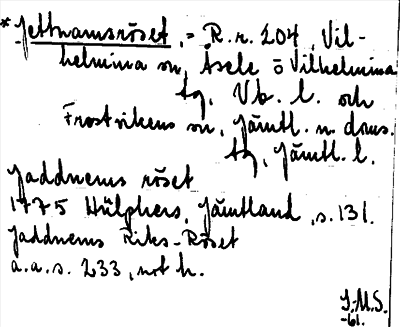 * Jettnamsröset, = R.r. 204, Vil-
helmina sn, Åsele o Vilhelmina
tg, Vb. l. och
Frostvikens sn, Jämtl. n. doms.
tg, Jämtl. l.
Jaddnems röset
1775 Hülphers, Jämtland, s. 131.
Jaddnems Riks-Röset
a.a.s. 233, not h.
J.M.S.
-61.